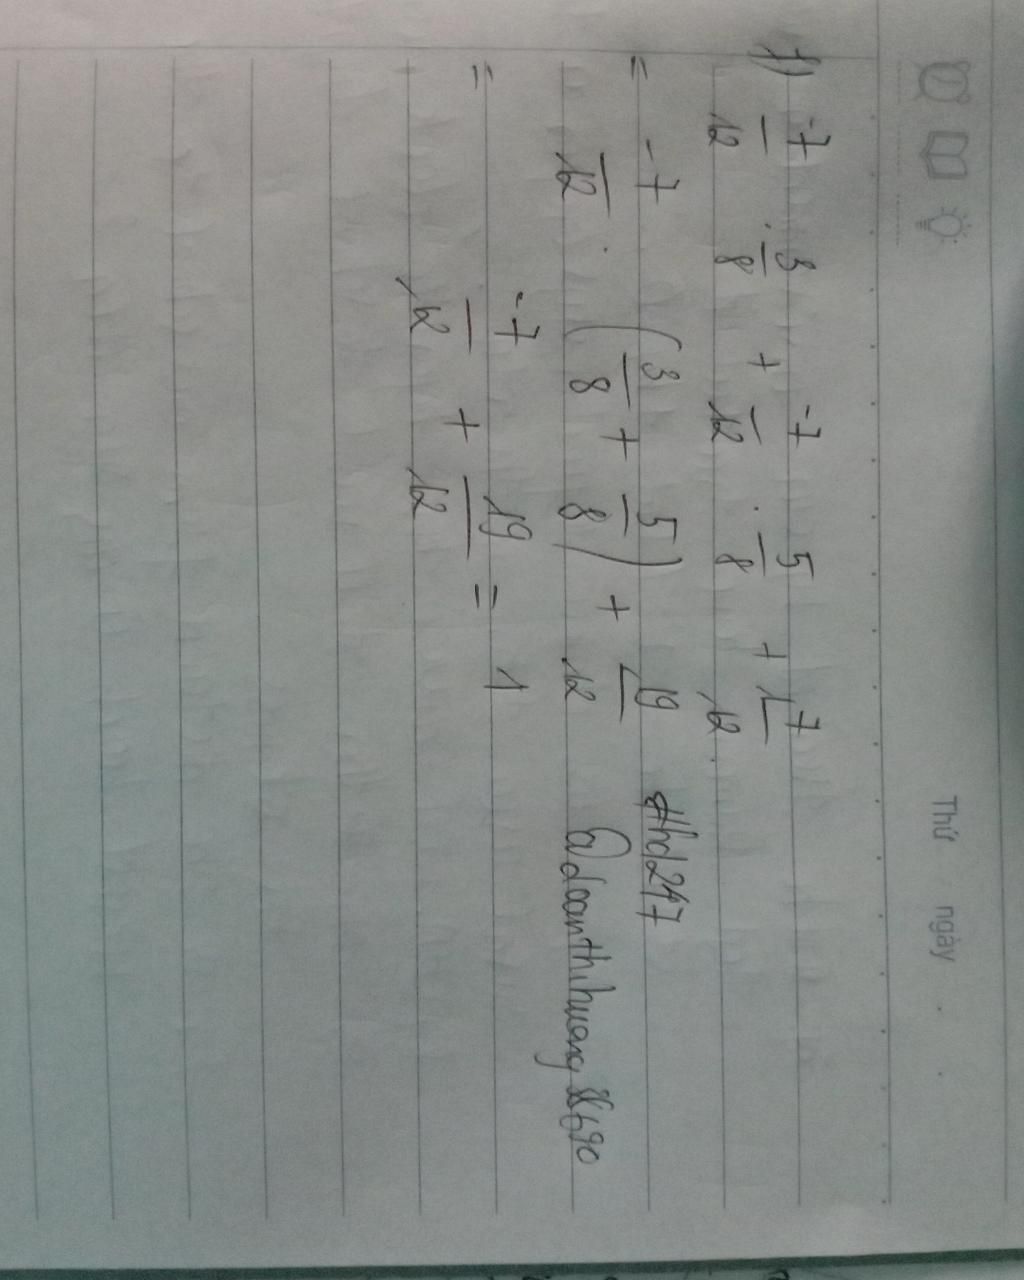 Thứ ngày
1) -7/12 . 3/8 + -7/12 . 5/8 + 1 7/12
= -7/12 . (3/8 + 5/8) + 19/12
#hd247
@doanthihuong
= -7/12 + 19/12 = 1